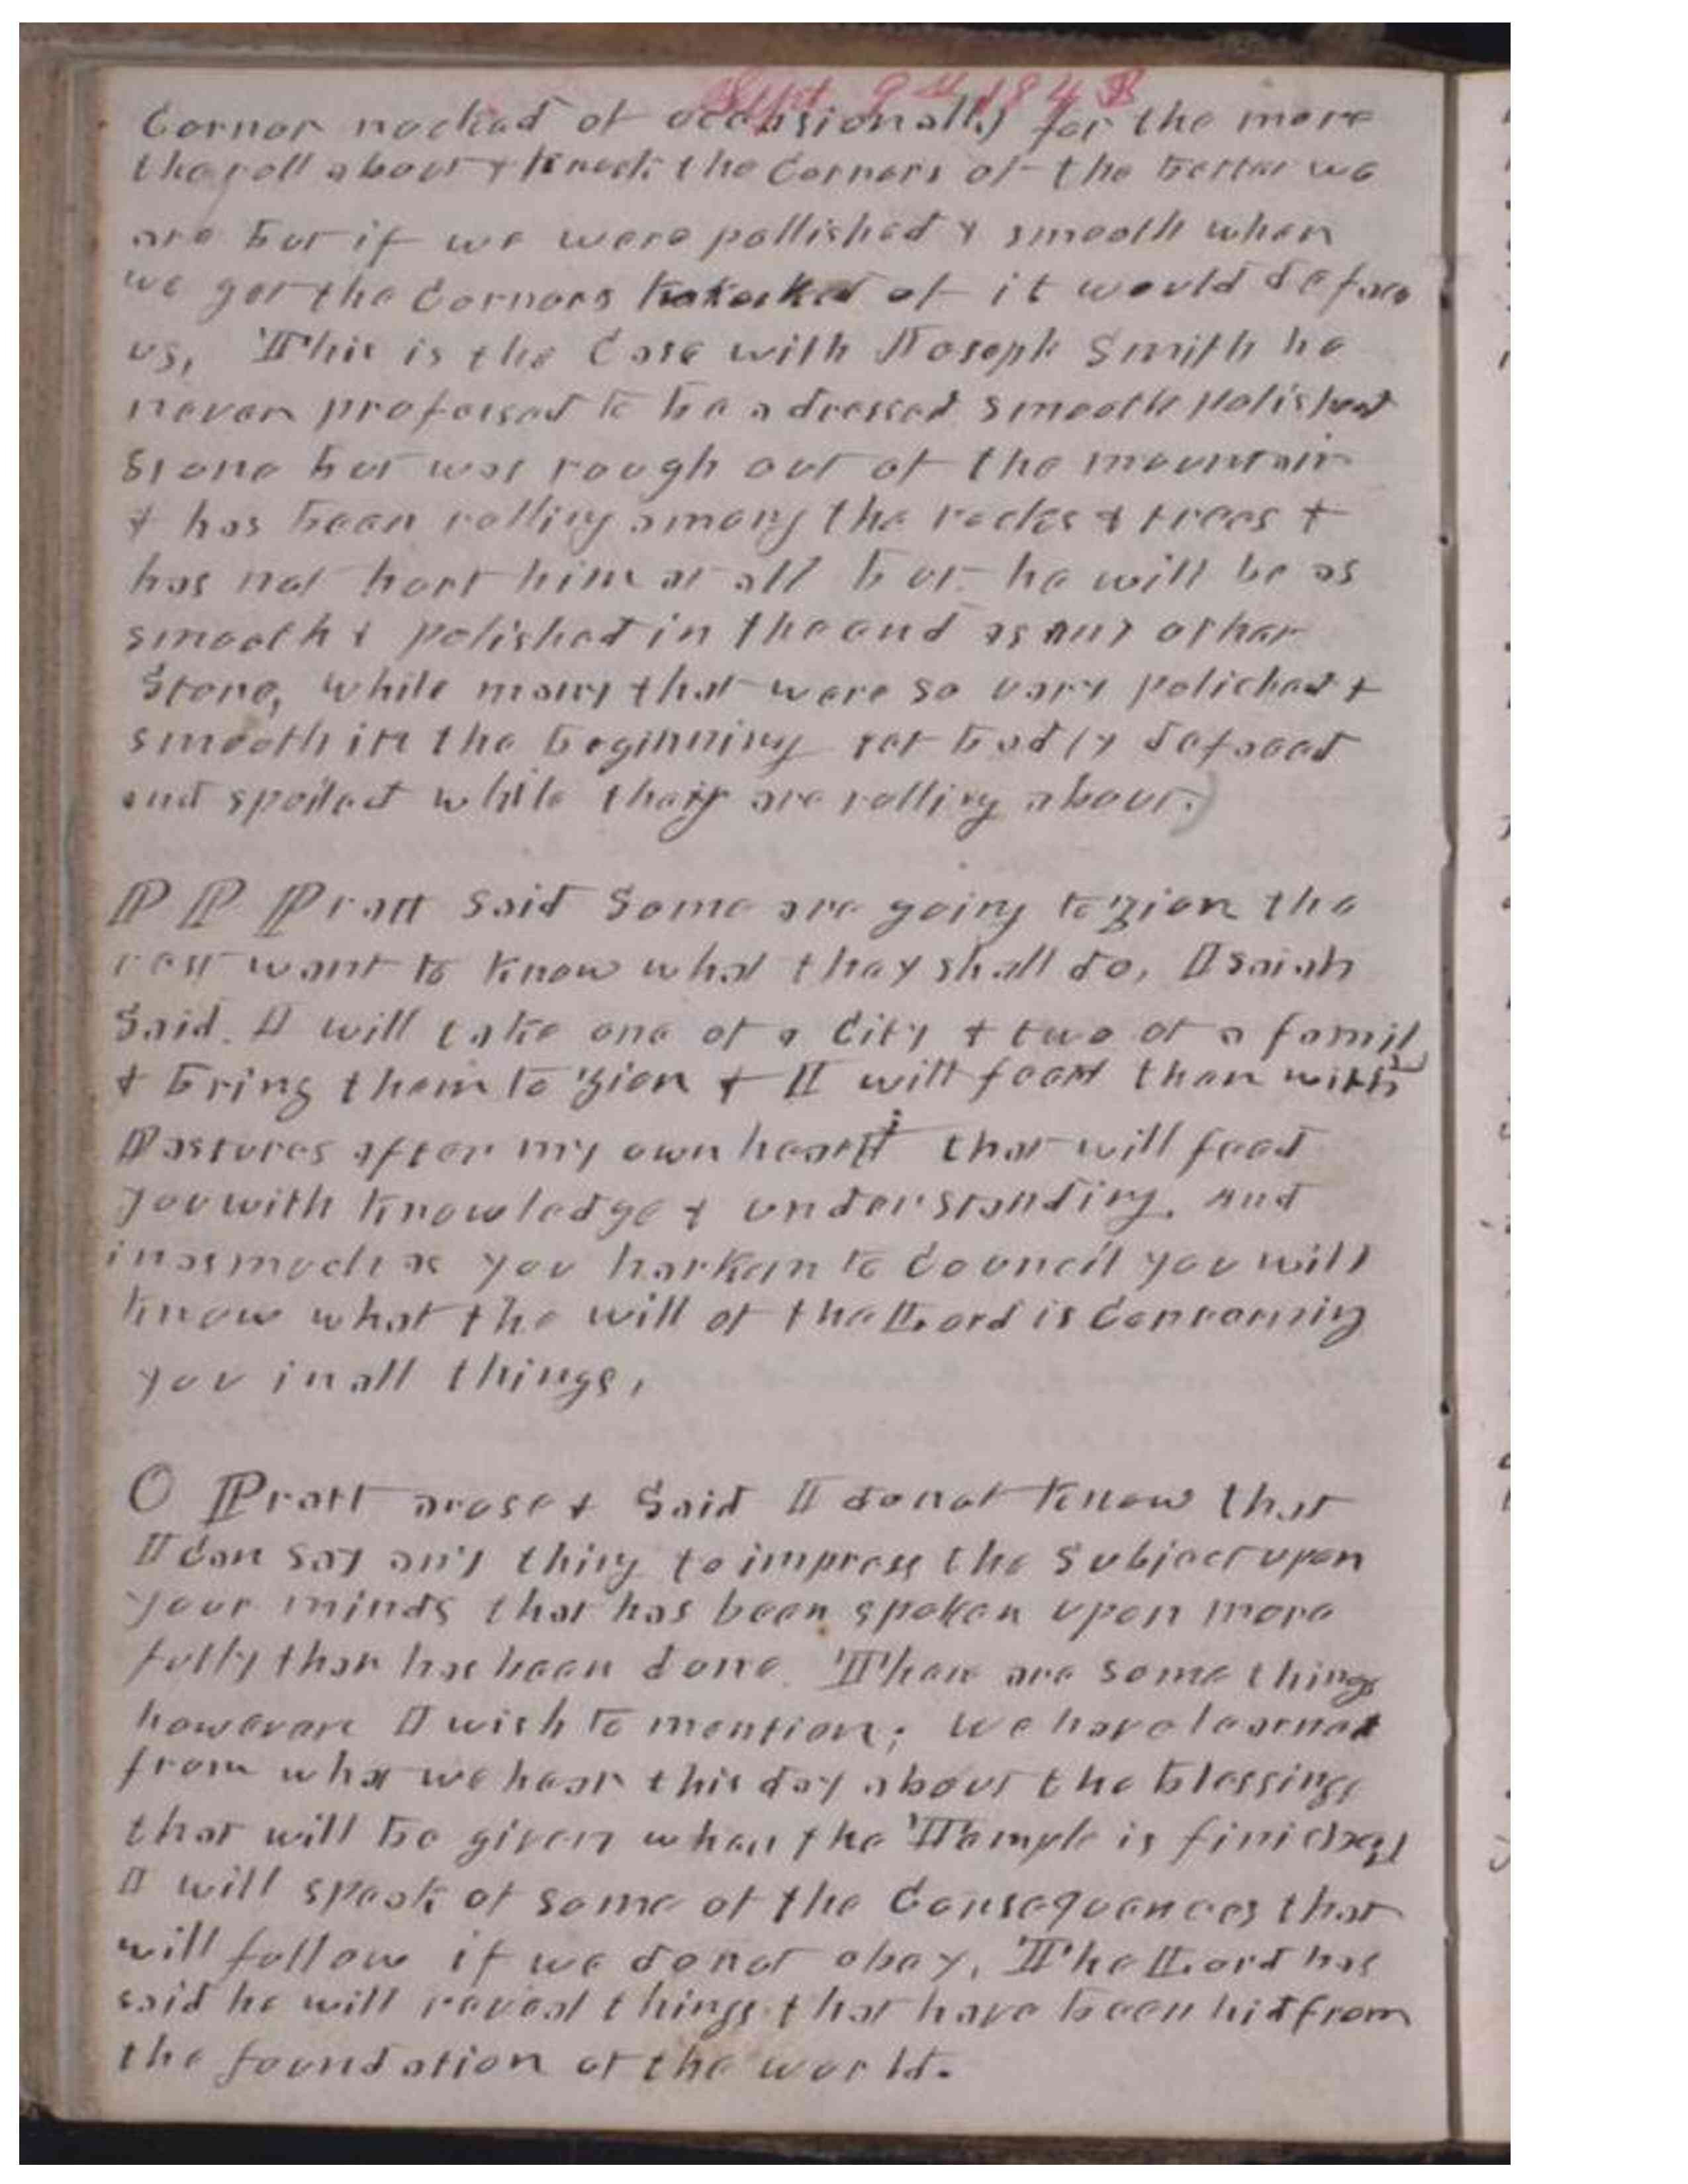 Sept 9th 1843
Corner nocked of occasionally for the more
the roll about & knock the corners of the better we
are but if we were pollished & smooth when
we get the corners knocked of it would deface
us, This is the Case with Joseph Smith he
never professed to be a dressed smooth polished
Stone but was rough out of the mountain
& has been rolling among the rocks & trees &
has not hurt him at all but he will be as
smooth & polished in the end as any other
Stone, while many that were so vary polished &
smooth in the beginning get badly defaced
and spoiled while they are rolling about.)
P P Pratt said Some are going to Zion the
rest want to know what they shall do, Isaiah
Said. I will take one of a City & two of a family
& bring them to Zion & I will feed them with
Pastures after my own heart that will feed
you with knowledge & understanding. and
inasmuch as you harken to Council you will
know what the will of the Lord is concerning
you in all things,
O Pratt arose & Said I do not know that
I can say any thing to impress the Subject upon
your minds that has been spoken upon more
fully than has been done. Thare are some things
however I wish to mention; we have learned
from what we hear this day about the blessings
that will be given when the Temple is finished
I will speak of some of the Consequences that
will follow if we do not obey. The Lord has
said he will reveal things that have been hid from
the foundation of the world.